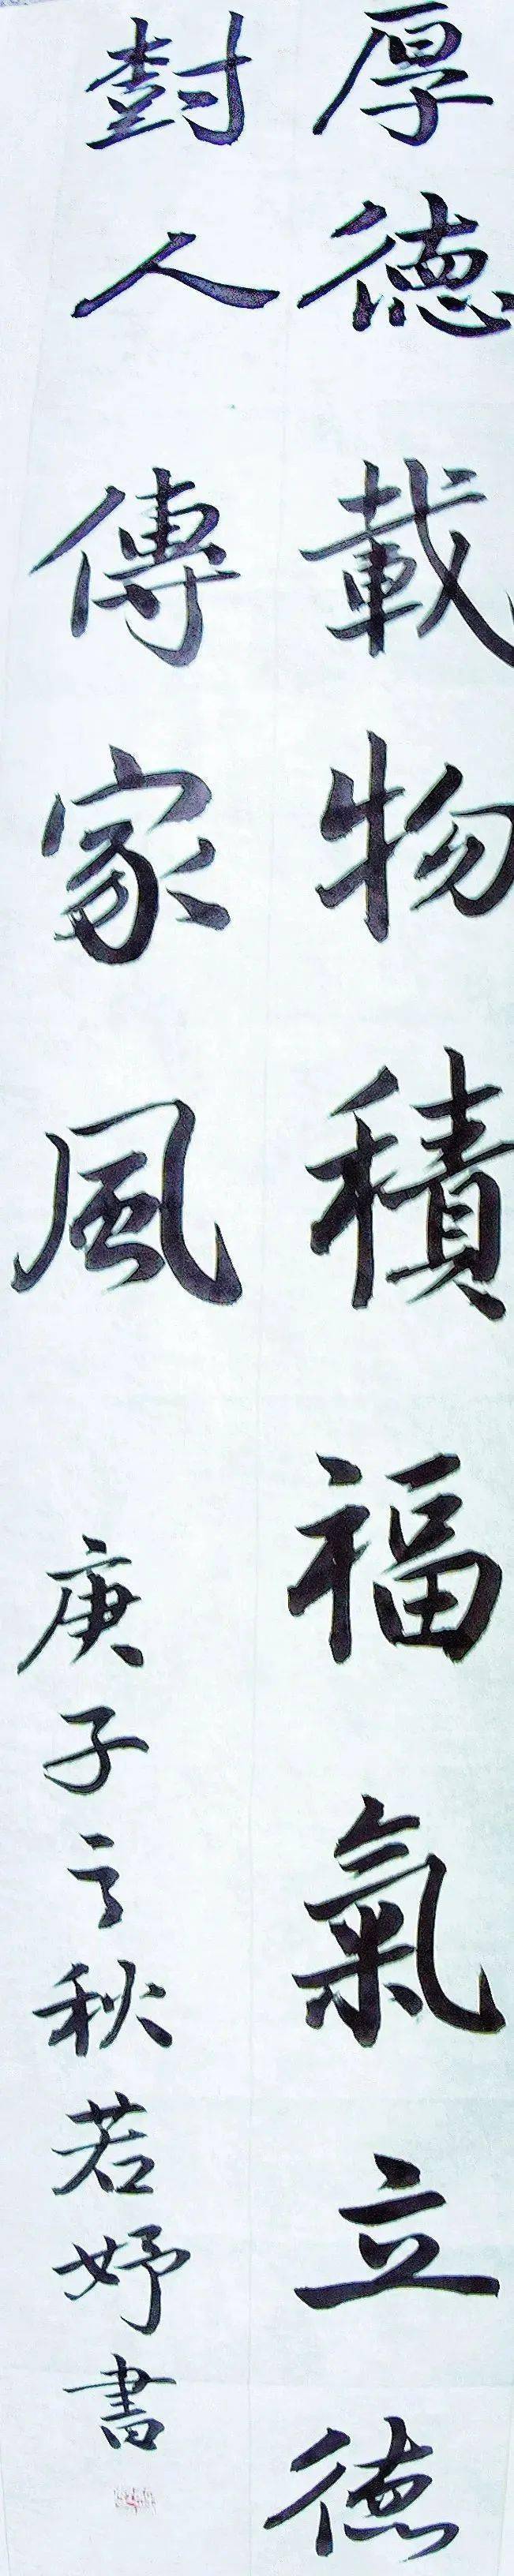 厚德載物積福氣立德
樹人傳家風
庚子之秋若妤書